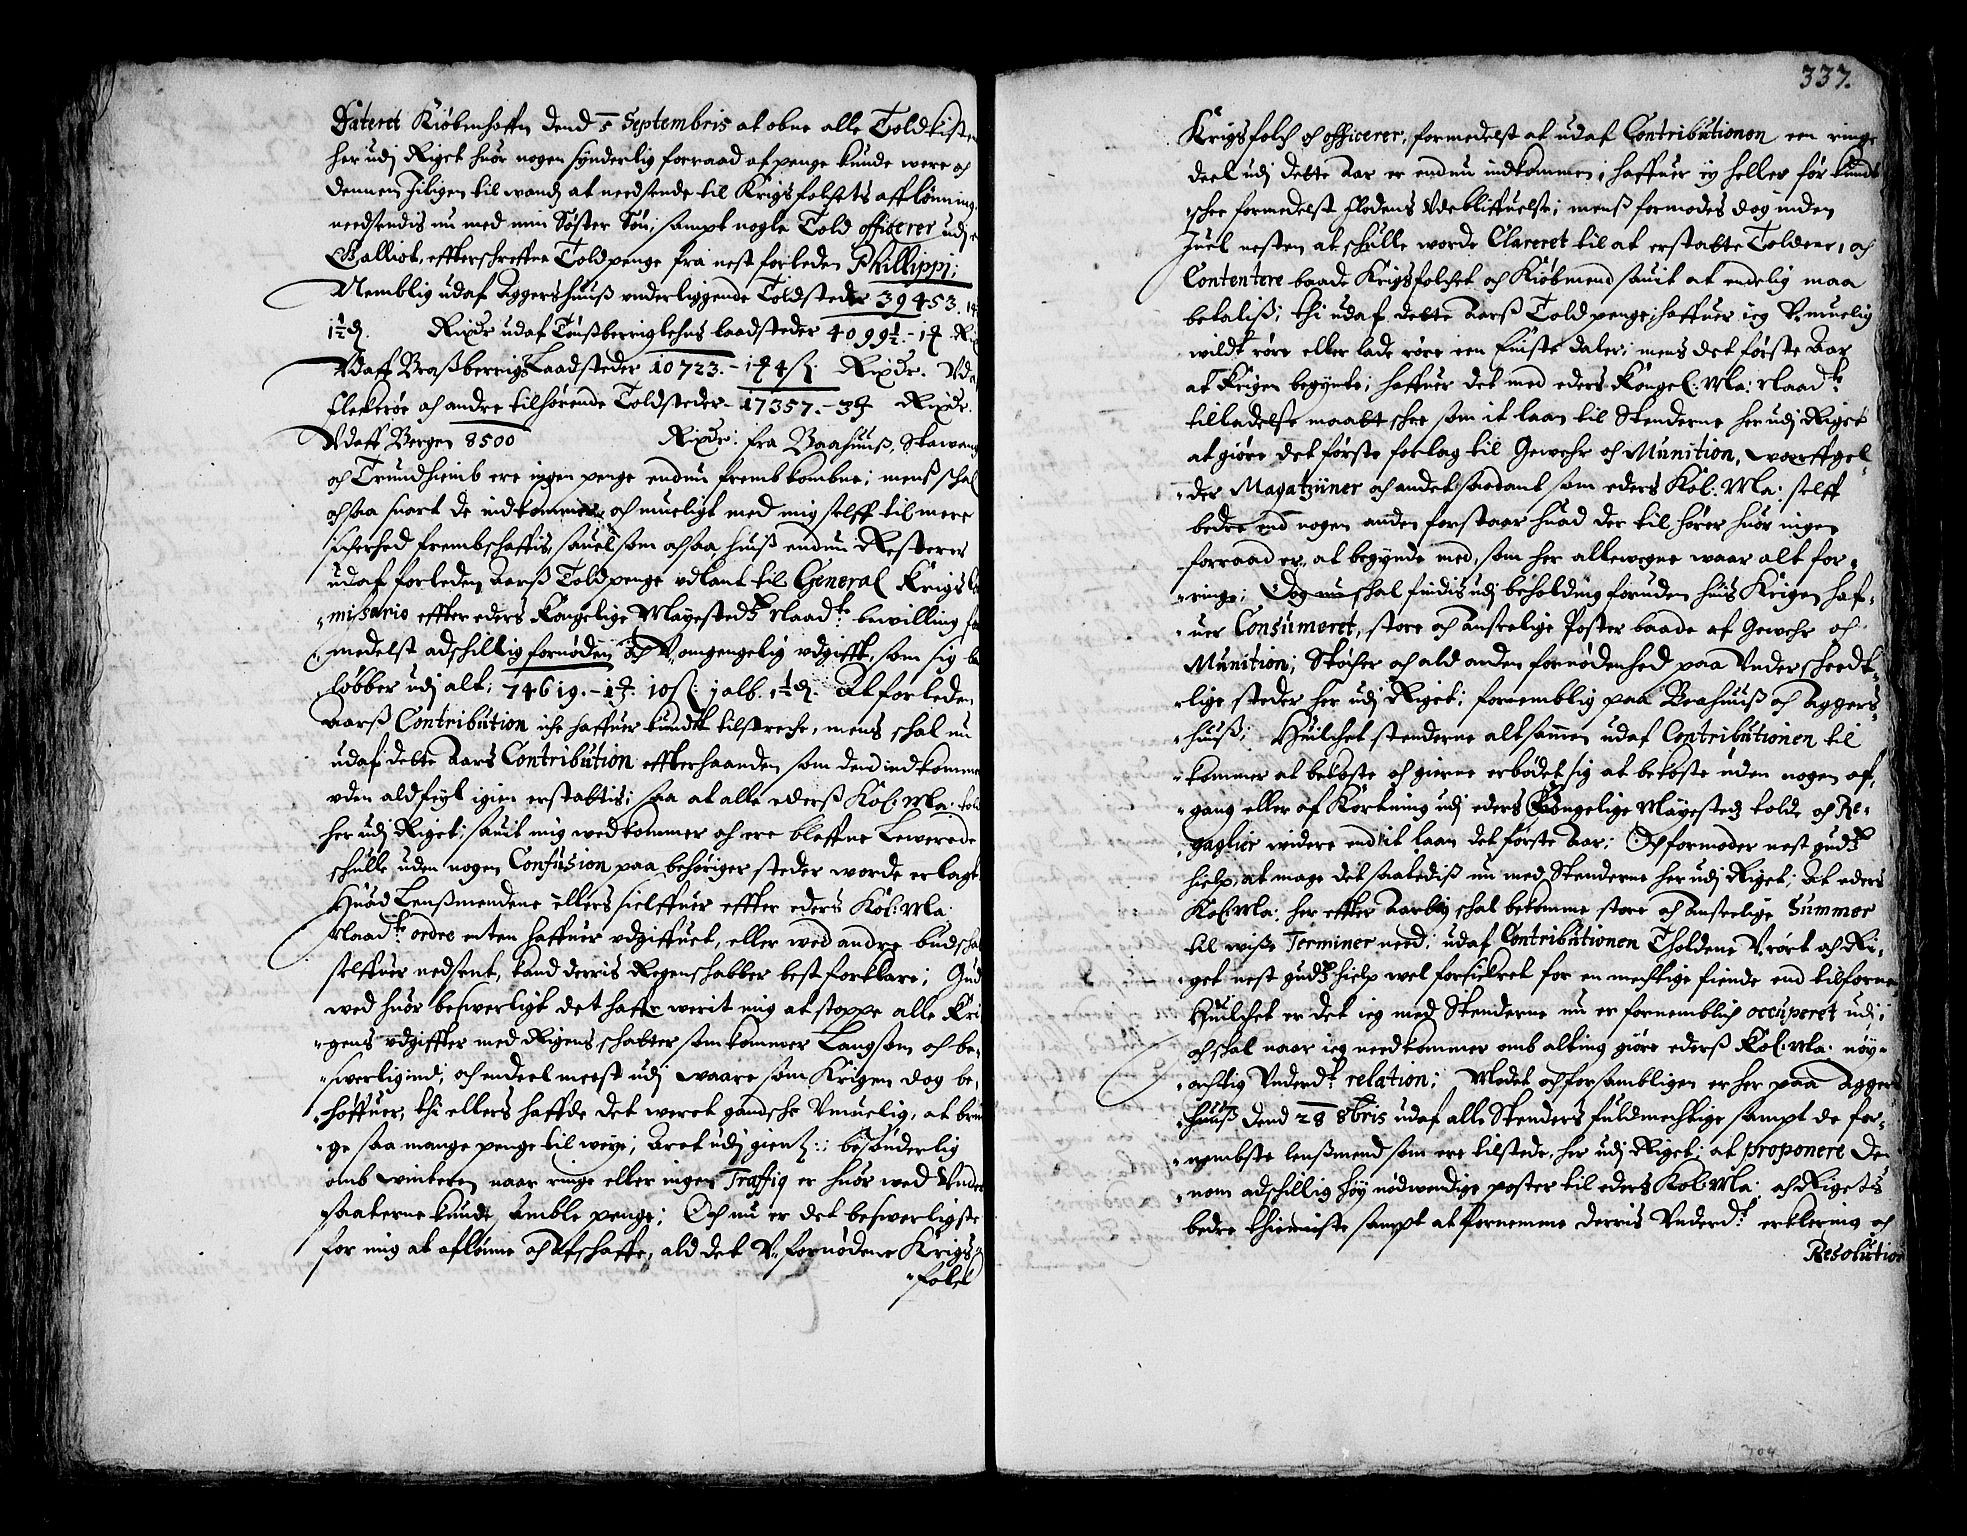 Dateret Kiöbenhaffn dend 5 Septembris at obne alle Toldkister
her udj Riget huor nogen synderlig forraad af penge kunde were och
dennem Jiligen til wands at needsende til Krigsfolkets afflönning
needsendis nu med min Söster Sön, sampt nogle Told officerer udj
Galliot, effterschreffne Toldpenge fra nest forleden Phillippi;
Nemblig udaf Aggershuuß vnderliggende Toldsteder 39453.
1½ Rixdr udaf Tunßberriglehns laadsteder 4099½.
Vdaff Braßberrigs Laadsteder 10723. Rixdr. Vdaf
Flekeröe och andre tilhörende Toldsteder 17357. Rixdr.
Vdaff Bergen 8500 Rixdr: fra Baahuuß, Stawang
och Trundhiemb ere ingen penge endnu fremb kombne; menß schal
ochsaa snart de indkommer och mueligt med mig selff til mere
sicherhed frembschaffis, sauelsom ochsaa huiß endnu Resterer
udaf forleden aarß Toldpenge vdlant til General Krigs
misario effter eders Kongelige Mayestedtz Naadte bewilling for
medelst adschillig fornöden och Vomgengelig vdgifft, som sig be
löbber udj alt; 74619. 10 ß 1 alb. At forleden
Aarß Contribution iche haffuer kundt tilstreche, mens schal nu
udaf dette Aars Contribution effterhaanden som dend indkommer
vden ald feyl igien erstattis; saa at alle ederß Kol: Ma: told
her udj Riget; sauit mig wedkommer och ere bleffne Leuerede
schulle uden nogen Confusion paa behöriger steder worde erlagt
Huad Lensmendene ellers sielffuer effter eders Kol: Ma:
Naadte ordre enten haffuer vdgiffuet, eller wed andre budschab
selffuer nedsent, kand derris Regenschabber best forklare; Gud
wed huor beswerligt det haffr werit mig at stoppe alle Kri
gens vdgiffter med Rigens schatter som kommer Langsom och be-
swerligind; och endeel meest udj waare som Krigen dog be-
höffuer; thi ellers haffde det weret gandsche Vmuelig, at brin
ge saa mange penge til weye; Aaret udj besönderlig
omb winteren naar ringe eller ingen Traffiq er huor wed Vnder
saatterne kunde samble penge; Och nu er det beswerligste
for mig at aflönne och Afschaffe, ald det V-fornödene Krigs
folck
337.
Krigsfolch och officerer, formedelst at udaf Contributionen een ringe
deel udj dette Aar er endnu indkommen; haffuer ey heller för kundt
schee formedelst flodens Vdebliffuelse; menß formodes dog inden
Juel nesten at schulle worde Clareret til at erstatte Toldene, och
Contentere baade Krigsfolchet och Kiöbmend sauit at endelig maa
betaliß; thi udaf dette Aarß Toldpenge; haffuer ieg V-muelig
wildt röre eller lade röre een Eniste daler; mens det förste Aar
at Krigen begynte; haffuer det med eders Kongel: Ma: Naadte
tilladelse maatt schee som it laan til Stenderne her udj Riget
at giöre det förste forlag til Gewehr och Munition, worffgel-
der Magatziner och andet saadant som eders Kol: Ma: selff
bedre end nogen anden forstaar huad der til hörer huor ingen
forraad er, at begynde med, som her allewegne waar alt for-
ringe; Dog schal findis udj beholding foruden huis Krigen haf-
uer Consumeret, store och Anseelige Poster baade af Gewehr och
Munition; Stöcher och ald anden fornödenhed paa Vnderscheedt-
lige steder her udj Riget; fornemblig paa Baahuuß och Aggers-
huuß; Huilchet stenderne altsammen udaf Contributionen til
kommer at bekoste och gierne erböd sig at bekoste uden nogen af-
gang eller af Kortning udj eders Kongelige Mayestedz tolde och Re-
gaglier widere end it laan det förste Aar; Och formoder nest gudz
hielp, at mage det saalediß nu med Stenderne her udj Riget; At eders
Kol: Ma: her effter Aarlig schal bekomme store och Anseelige Summer
til wiße Terminer need; udaf Contributionen Tholdene Vrört och Ri-
get nest gudz hielp wel forsicket for en mechtige fiende end tilforne
Huilchet er det ieg med Stenderne nu er fornemblich occuperet udj;
och schal naar ieg needkommer omb alting giöre ederß Kol: Ma: nöy-
achtig Vnderdt relation; Modet och forsamblingen er her paa Aggers
huuß dend 28 8bris udaf alle Stenders fuldmechtige sampt de for-
nembste lenßmend som ere tilstede, her udj Riget; at proponere den
nom adschillig höy nödwendige poster til eders Kol: Ma: och Rigets
bedre thienniste sampt at fornemme derris Vnderdt erklering och
Resolution
304